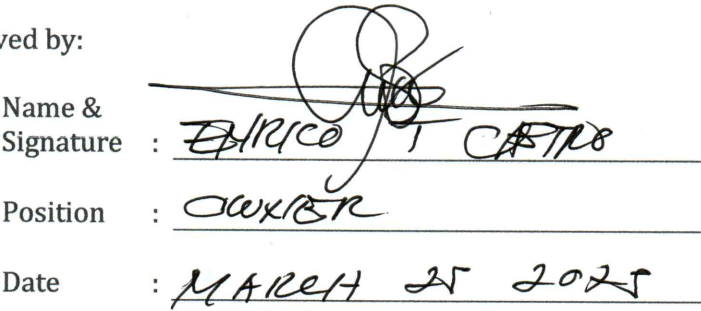 ved by:
Name &
Signature : ENRICO T CASTRO
Position : OWNER
Date : MARCH 25 2025